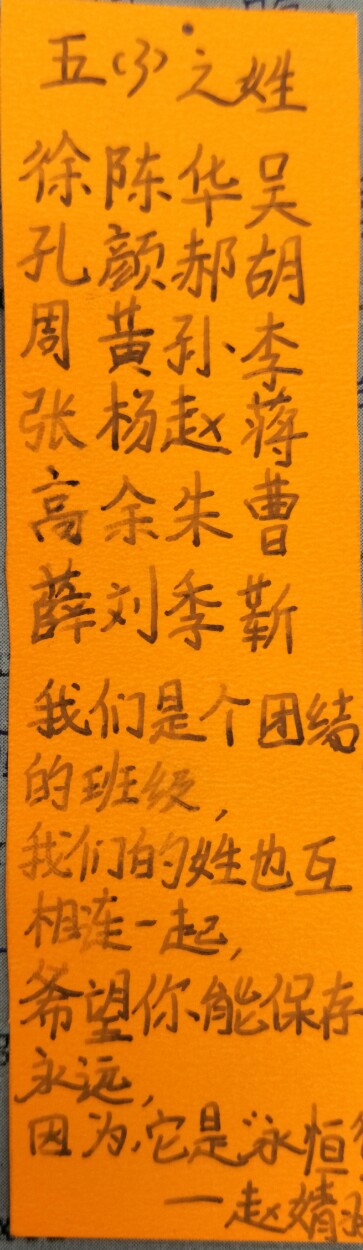 五(3)之姓
徐陈华吴
孔颜郝胡
周黄孙李
张杨赵蒋
高余朱曹
薛刘季靳
我们是个团结
的班级,
我们的姓也互
相连一起,
希望你能保存
永远,
因为,它是“永恒
—赵婧